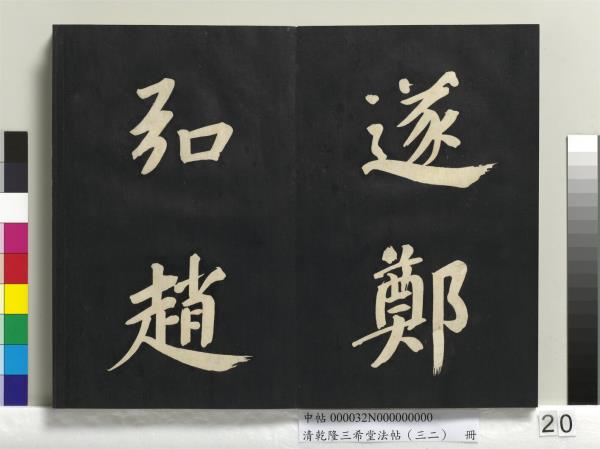 遂鄭
弘趙
中帖 000032N000000000
清乾隆三希堂法帖（三二） 冊
20